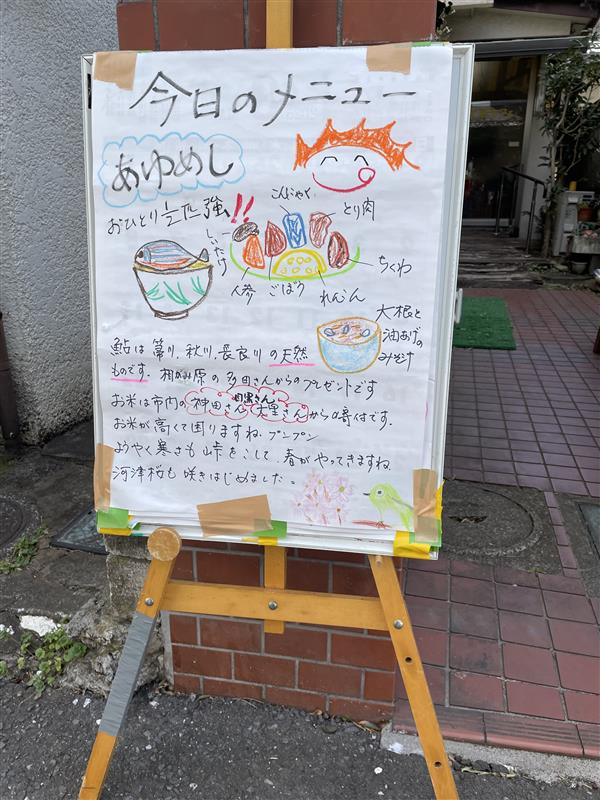 今日のメニュー
あゆめし
おひとり立匹強!!
こんにゃく
とり肉
しいたけ
ちくわ
人参
ごぼう
れんこん
大根と
油あげの
みそ汁
鮎は 川、秋川、長良川の天然
ものです。相模原の多田さんからのプレゼントです
お米は市内の神田さん 田さん 大里さんからの寄付です。
お米が高くて困りますね。プンプン
ようやく寒さも峠をこして、春がやってきますね
河津桜も咲きはじめました。